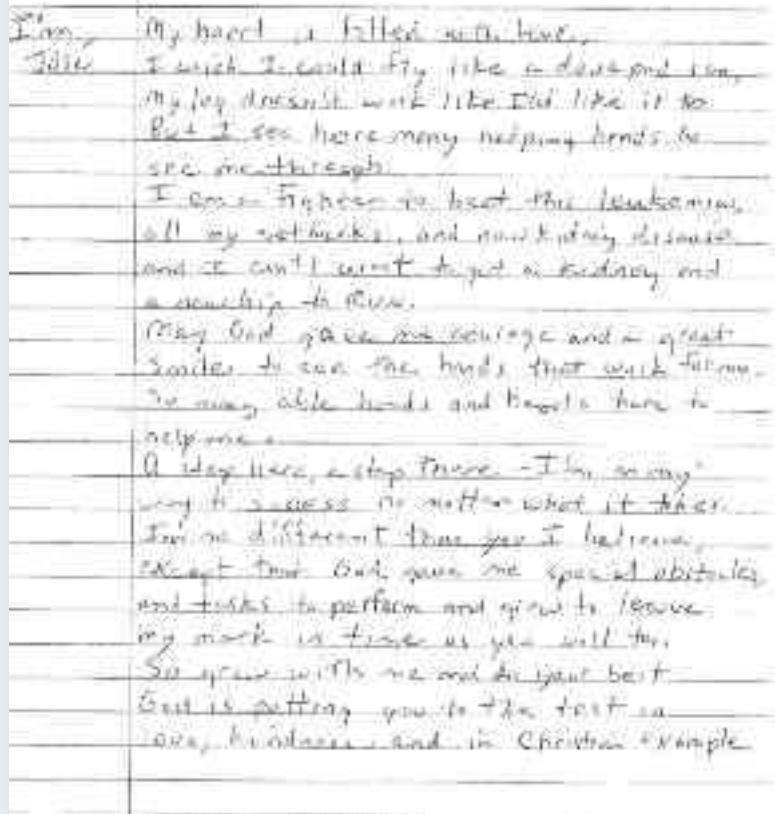 I'm My heart is filled with love,
Julie I wish I could fly like a dove and
My leg doesn't work like I'd like it to
But I see here many helping hands to
see me through.
I am a fighter to beat this leukemia,
all my setbacks, and now kidney disease
and I can't wait to get a kidney and
a new hip to
May God gave me courage and a great
smiles to see the hands that work for me.
So many able hands and hearts here to
help me.
A step here, a step there - I'm on my
way to no matter what it takes.
I'm no different than you I believe,
except that God gave me special obstacles
and tasks to perform and grow to leave
my mark in time as you will too.
So grow with me and do your best
God is putting you to the test in
love, kindness, and in Christian example